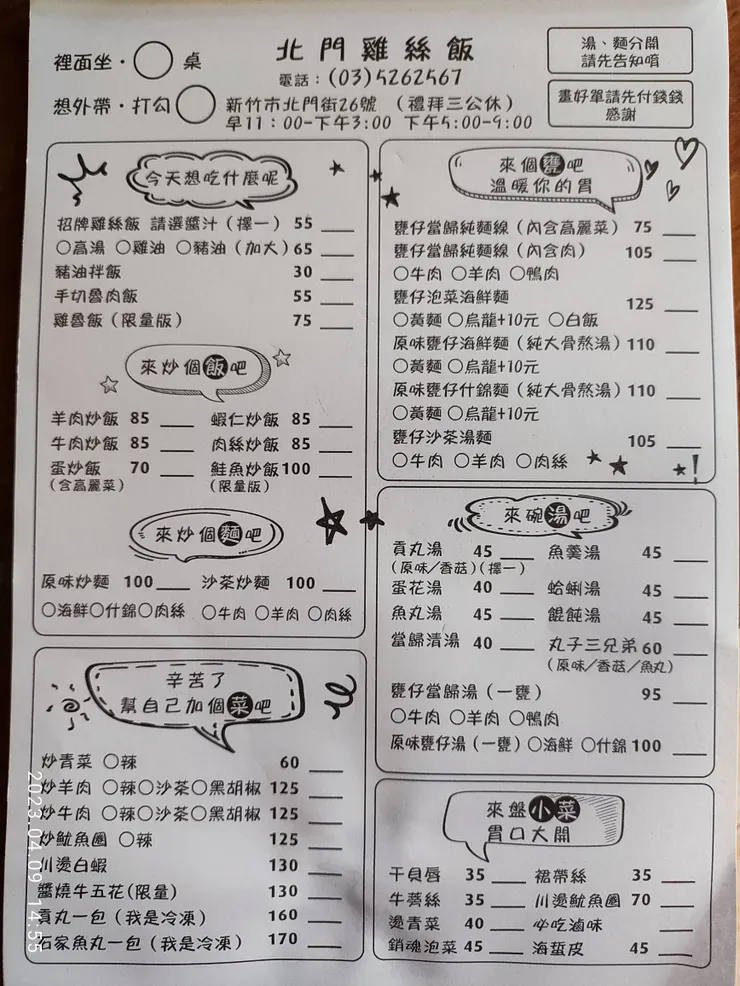 北門雞絲飯
裡面坐・○桌
電話：(03)5262567
想外帶・打勾○
新竹市北門街26號 （禮拜三公休）
早11：00-下午3:00 下午5:00-9:00
湯、麵分開
請先告知唷
畫好單請先付錢錢
感謝
今天想吃什麼呢
招牌雞絲飯 請選醬汁（擇一） 55
○高湯 ○雞油 ○豬油（加大）65
豬油拌飯 30
手切魯肉飯 55
雞魯飯（限量版） 75
來炒個飯吧
羊肉炒飯 85 蝦仁炒飯 85
牛肉炒飯 85 肉絲炒飯 85
蛋炒飯 70 鮭魚炒飯100
（含高麗菜） （限量版）
來炒個麵吧
原味炒麵 100 沙茶炒麵 100
○海鮮○什錦○肉絲 ○牛肉 ○羊肉 ○肉絲
辛苦了
幫自己加個菜吧
炒青菜 ○辣 60
炒羊肉 ○辣○沙茶○黑胡椒 125
炒牛肉 ○辣○沙茶○黑胡椒 125
炒魷魚圈 ○辣 125
川燙白蝦 130
醬燒牛五花(限量) 130
貢丸一包（我是冷凍） 160
石家魚丸一包（我是冷凍） 170
來個甕吧
溫暖你的胃
甕仔當歸純麵線（內含高麗菜） 75
甕仔當歸純麵線（內含肉） 105
○牛肉 ○羊肉 ○鴨肉
甕仔泡菜海鮮麵 125
○黃麵 ○烏龍+10元 ○白飯
原味甕仔海鮮麵（純大骨熬湯）110
○黃麵 ○烏龍+10元
原味甕仔什錦麵（純大骨熬湯）110
○黃麵 ○烏龍+10元
甕仔沙茶湯麵 105
○牛肉 ○羊肉 ○肉絲
來碗湯吧
貢丸湯 45 魚羹湯 45
（原味/香菇）（擇一）
蛋花湯 40 蛤蜊湯 45
魚丸湯 45 餛飩湯 45
當歸清湯 40 丸子三兄弟60
（原味/香菇/魚丸）
甕仔當歸湯（一甕） 95
○牛肉 ○羊肉 ○鴨肉
原味甕仔湯（一甕）○海鮮 ○什錦 100
來盤小菜
胃口大開
干貝唇 35 裙帶絲 35
牛蒡絲 35 川燙魷魚圈 70
燙青菜 40 必吃滷味
銷魂泡菜 45 海蜇皮 45
2023.04.09 14:55